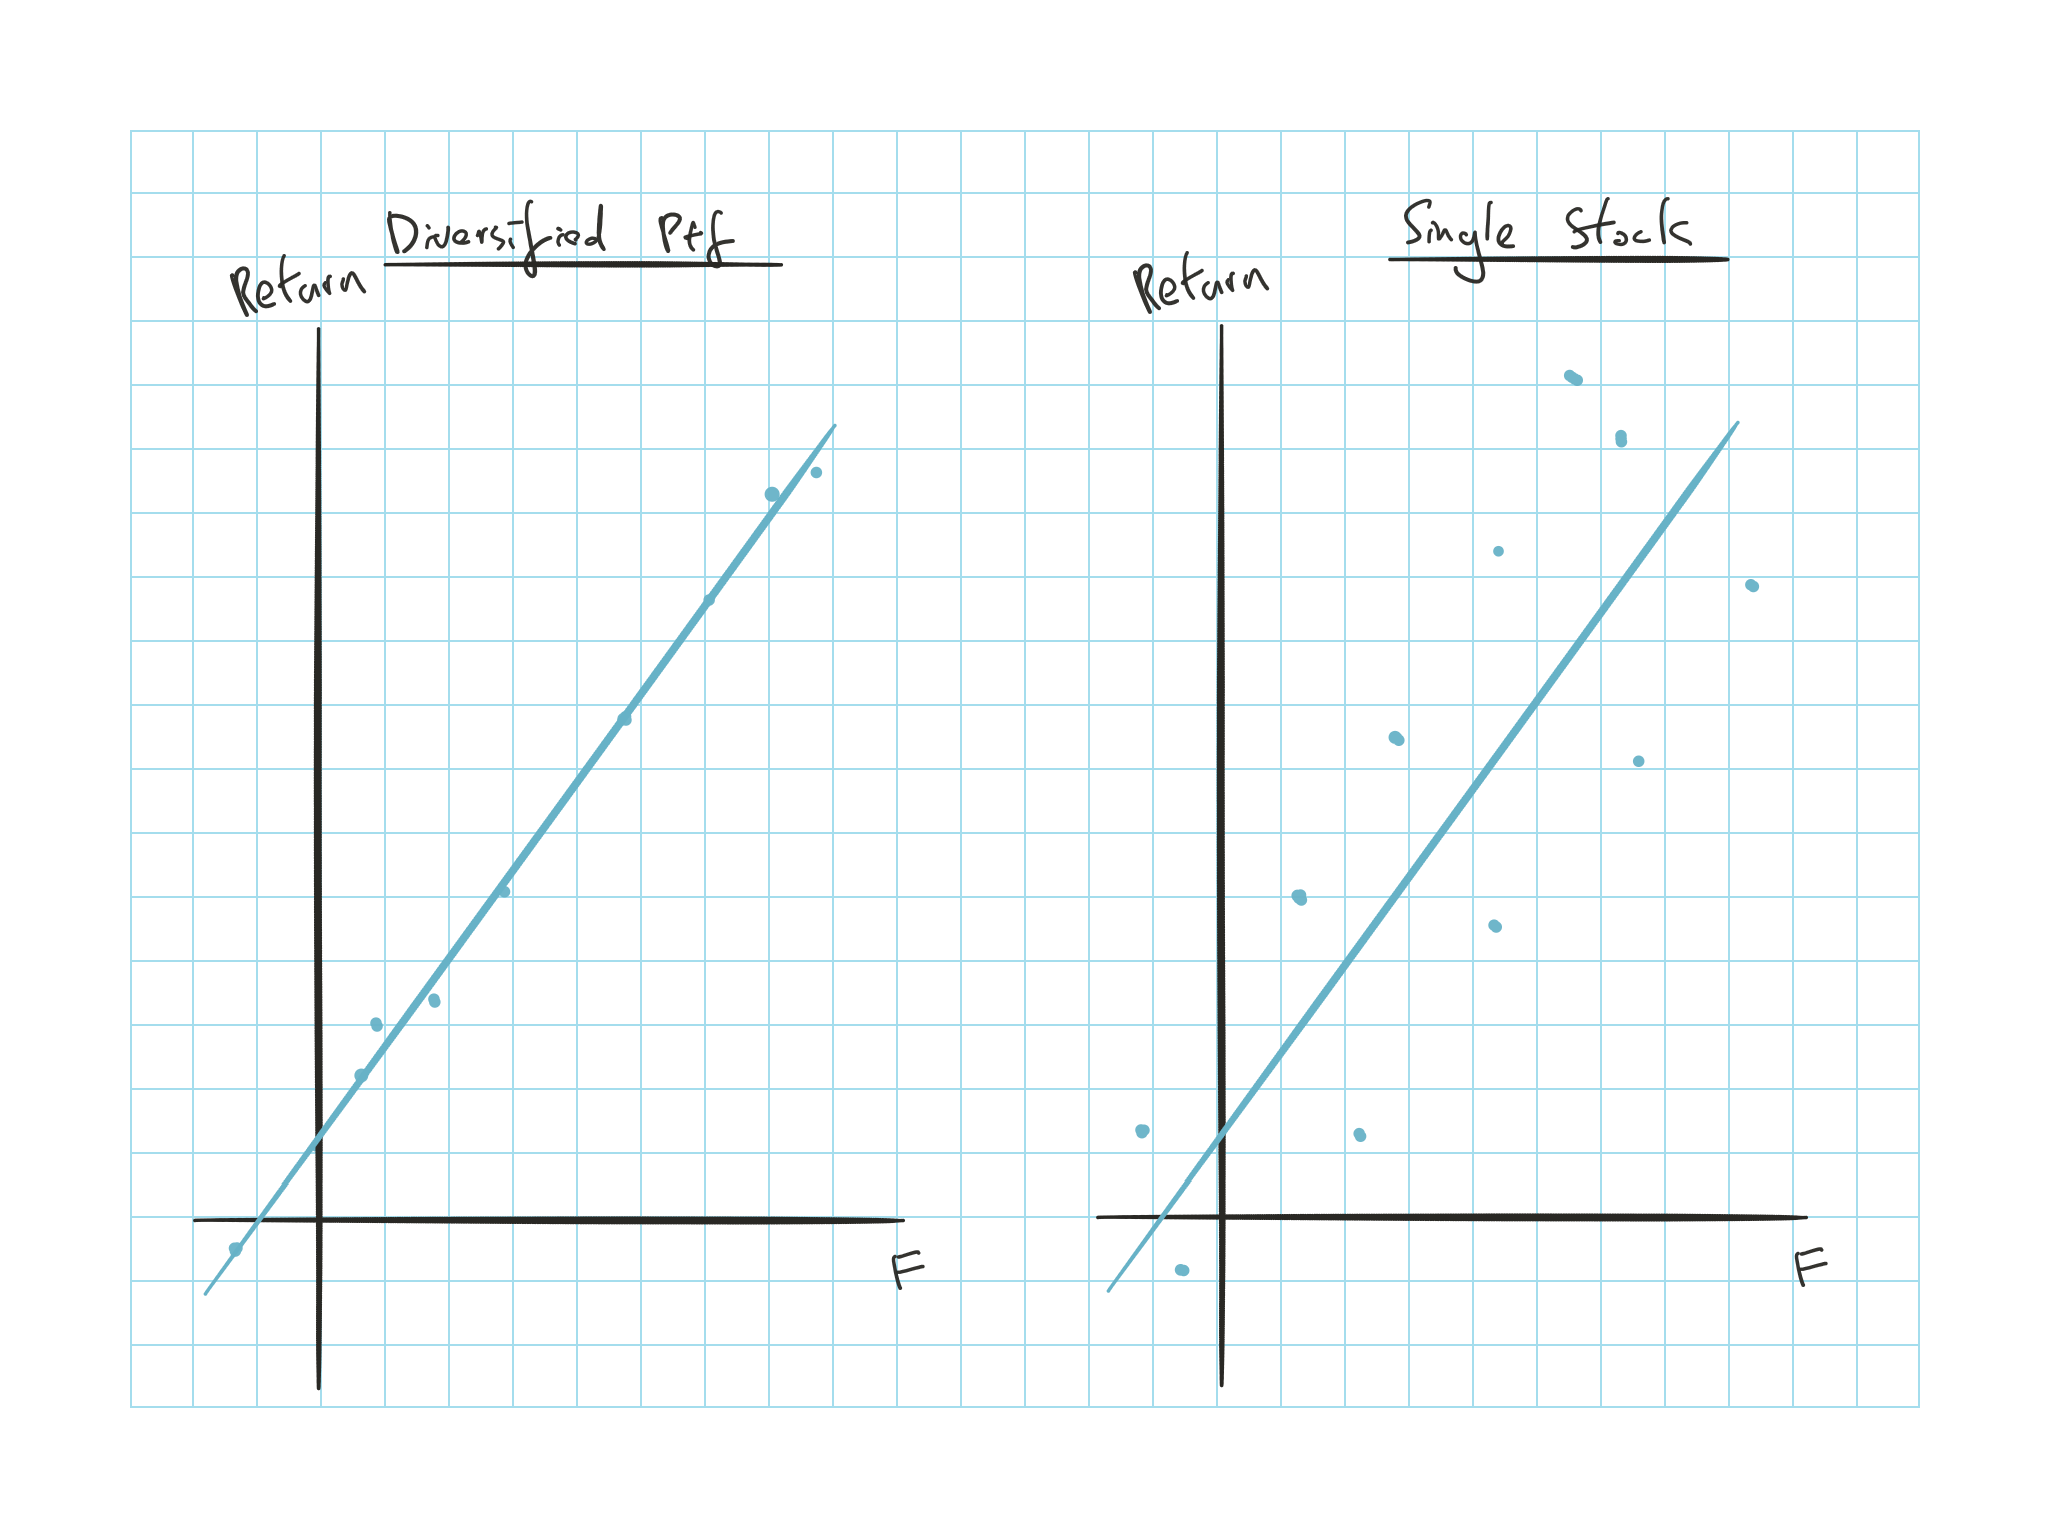 Diversified Ptf
Return
F
Single Stock
Return
F